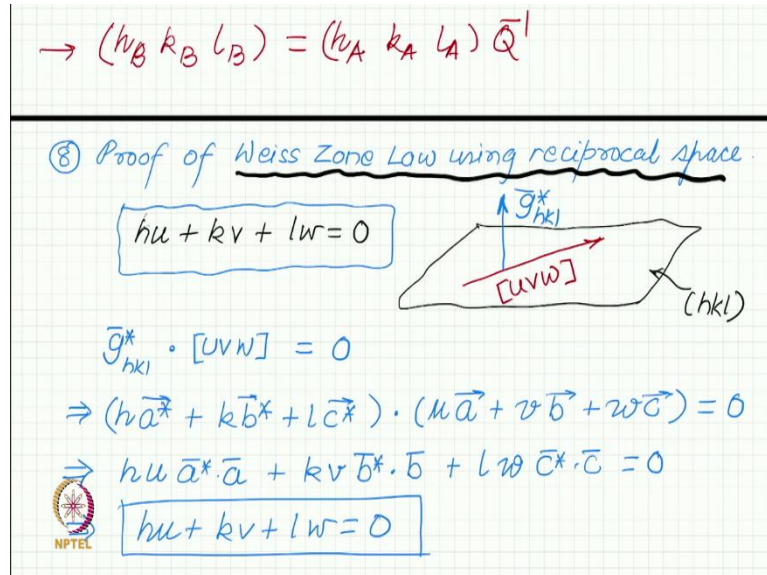 → (h_B k_B l_B) = (h_A k_A l_A) Q̄¹
⑧ Proof of Weiss Zone Law using reciprocal space.
hu + kv + lw = 0
ḡ*_hkl
[uvw]
(hkl)
ḡ*_hkl · [uvw] = 0
⇒ (ha⃗* + kb⃗* + lc⃗*) · (ua⃗ + vb⃗ + wc⃗) = 0
⇒ hu ā*·ā + kv b̄*·b̄ + lw c̄*·c̄ = 0
⇒ hu + kv + lw = 0
NPTEL